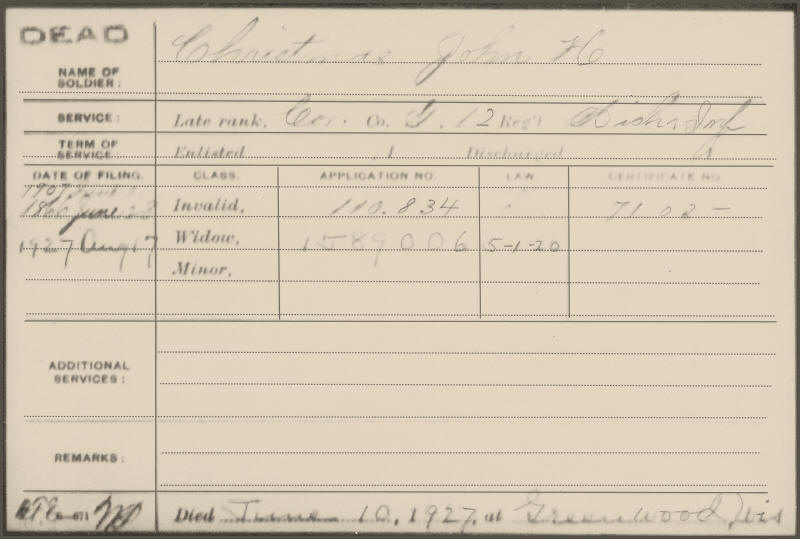 DEAD
Christmas John H
NAME OF SOLDIER:
SERVICE: Late rank, Cor. Co. G. 12 Reg't Mich Inf
TERM OF SERVICE: Enlisted , 1 Discharged , 1
DATE OF FILING. CLASS. APPLICATION NO. LAW CERTIFICATE NO.
1907
1866 June 23 Invalid, 110.834 71 02 -
1927 Aug 17 Widow, 1589006 5-1-20
Minor,
ADDITIONAL SERVICES:
REMARKS:
Died June 10, 1927, at Greenwood, Wis